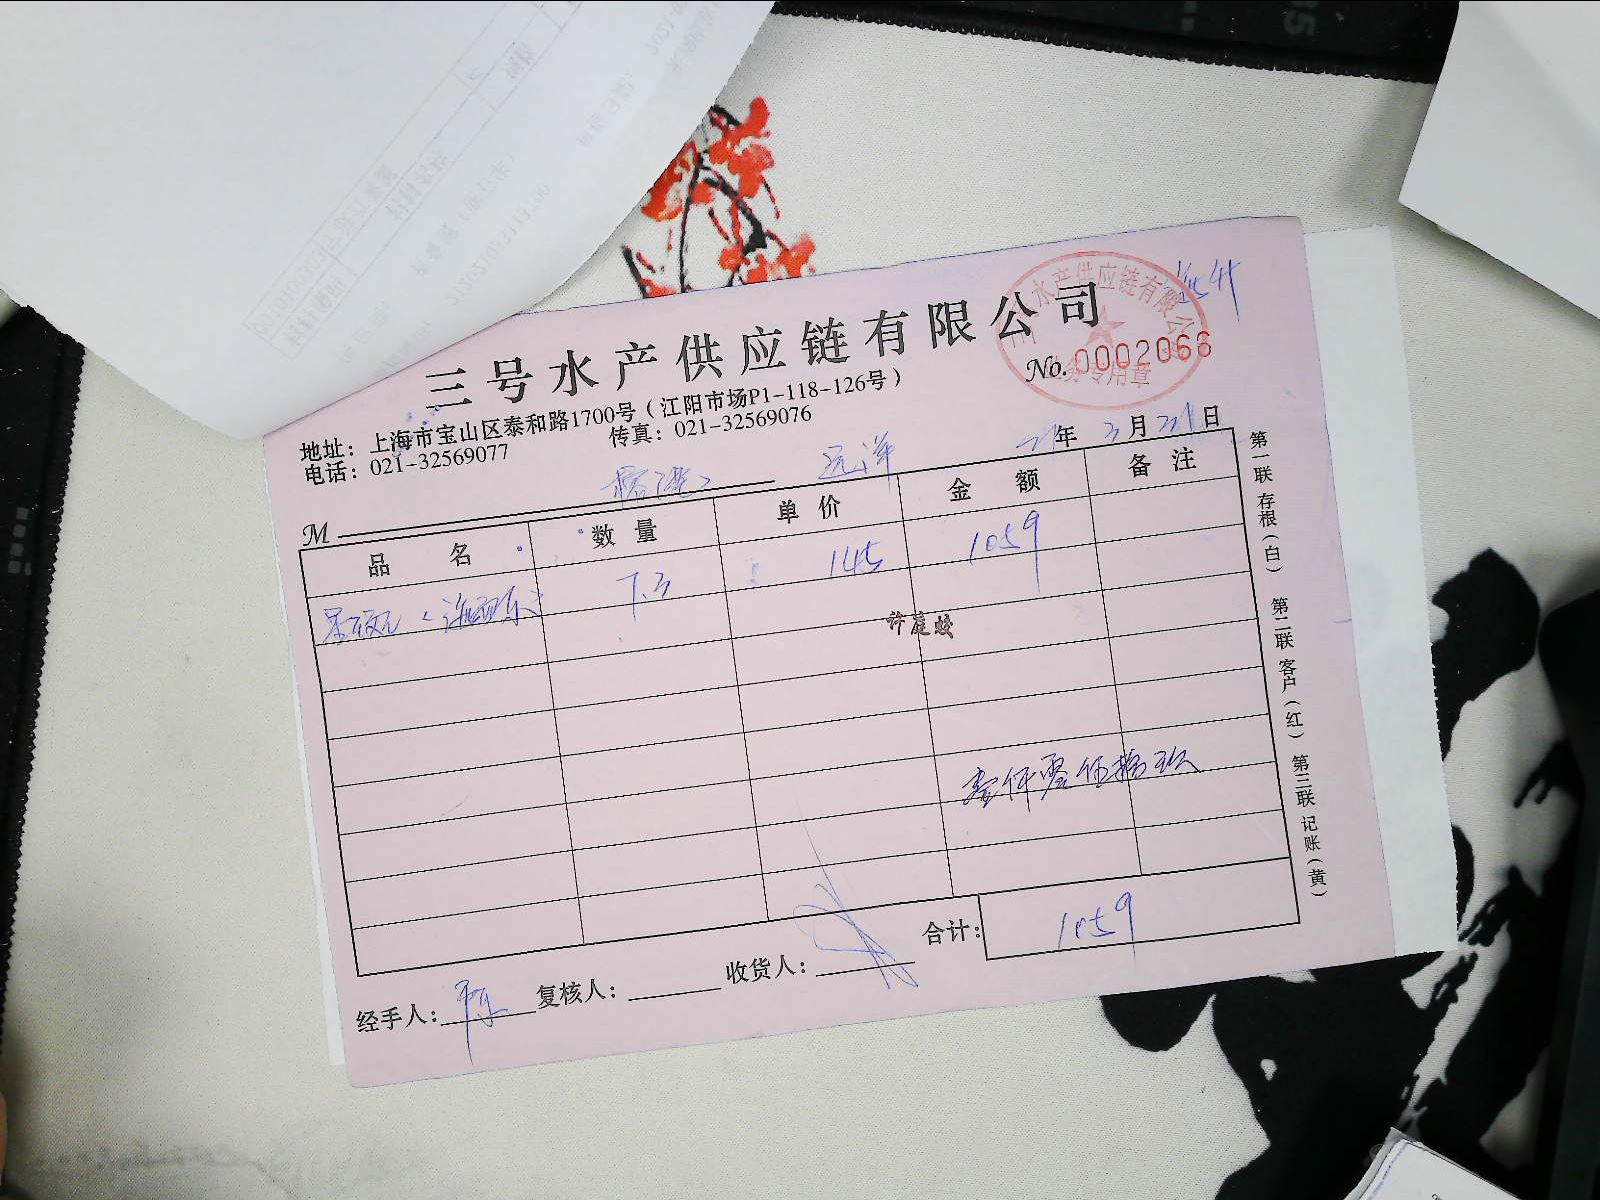 三号水产供应链有限公司
No. 0002066
水产供应链有限公
专用章
地址：上海市宝山区泰和路1700号（江阳市场P1-118-126号）
电话：021-32569077 传真：021-32569076
年 3月21日
M 远洋
品名 数量 单价 金额 备注
7.3 145 1059
许庭蛟
壹仟零伍拾玖
合计：1059
经手人： 复核人： 收货人：
第一联 存根（白） 第二联 客户（红） 第三联 记账（黄）